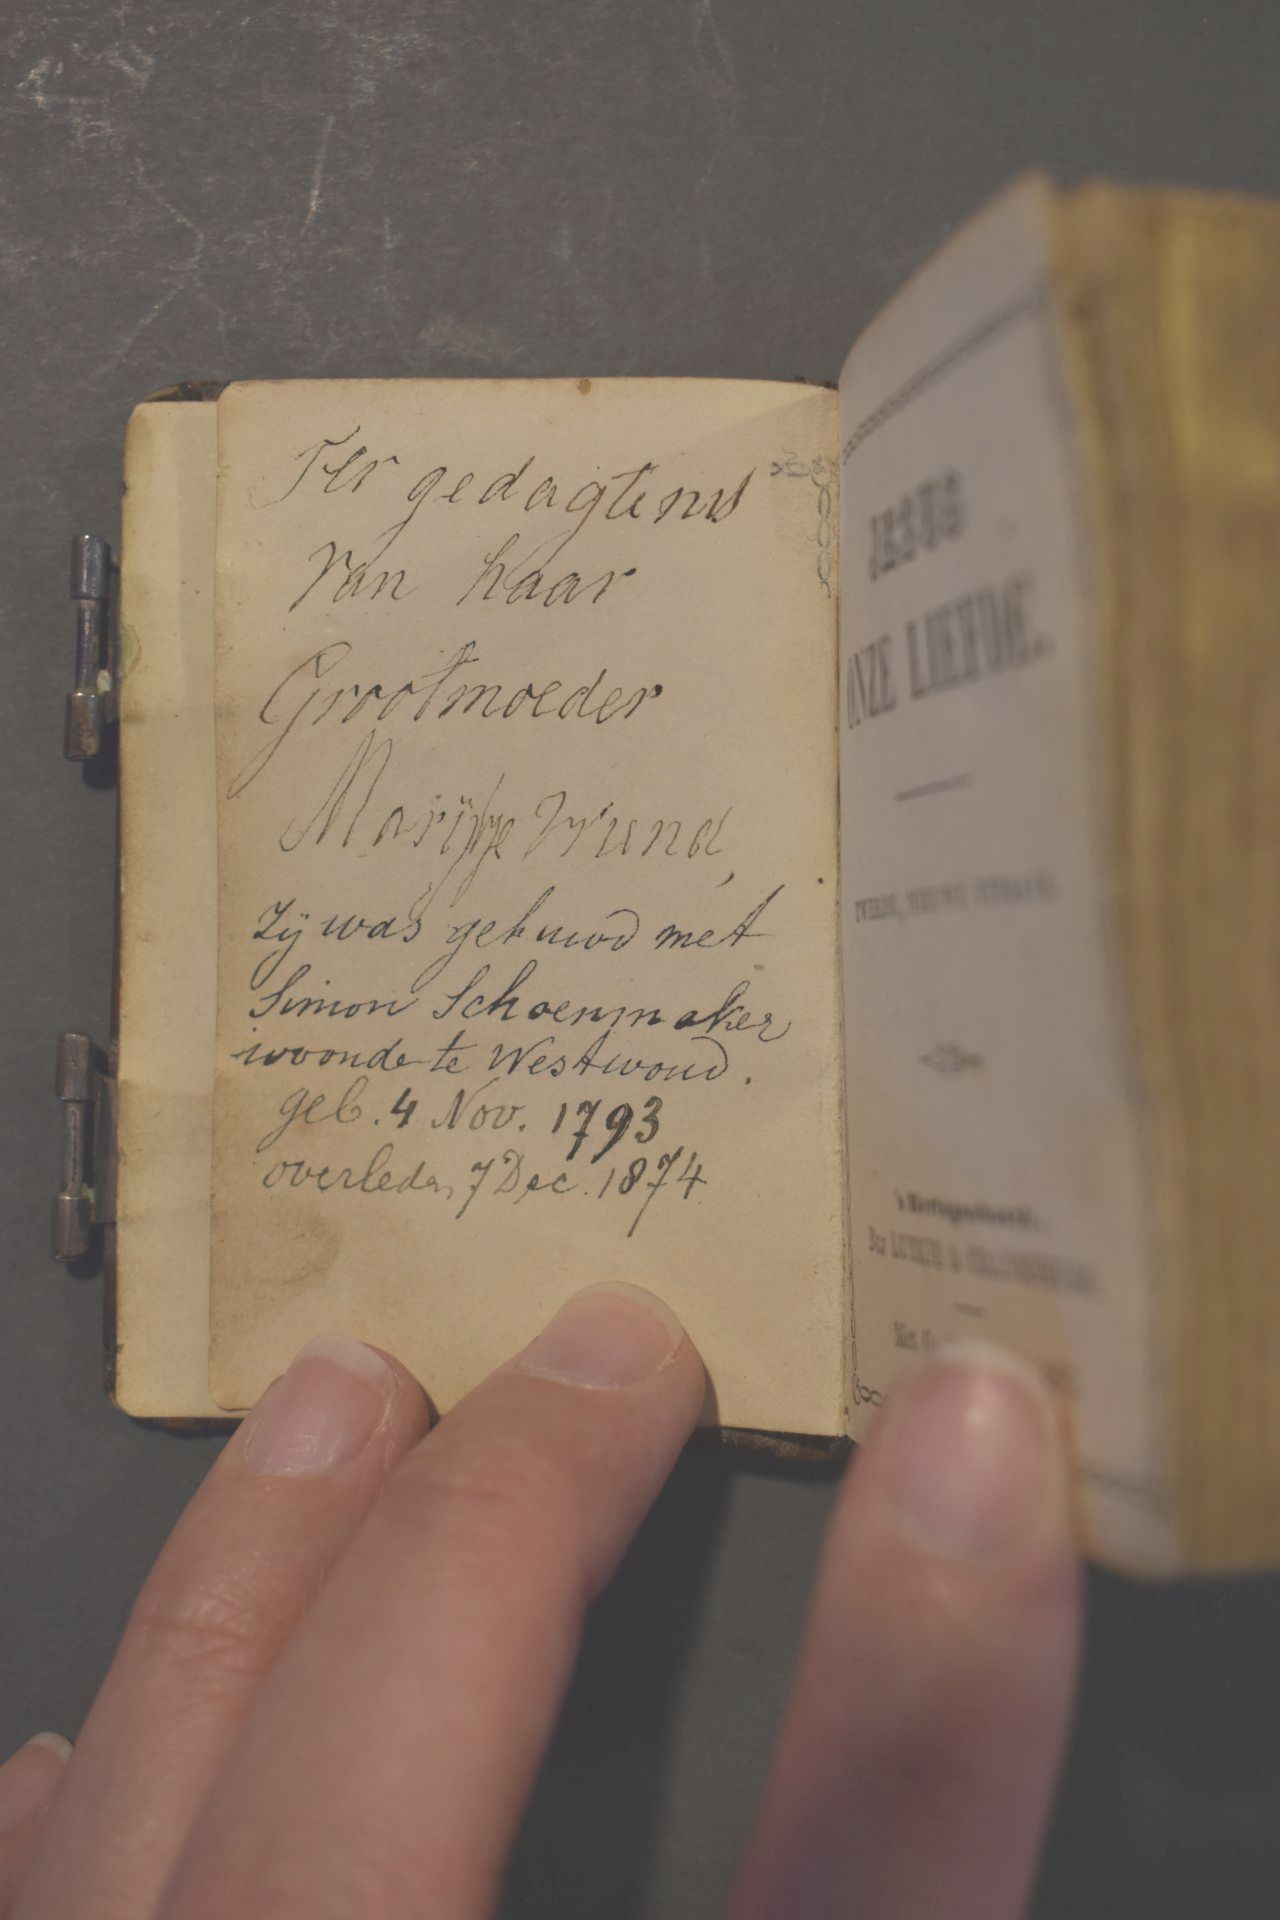 Ter gedagtenis
Van haar
Grootmoeder
Marijtje Vriend,
Zij was getuwd met
Simon Schoenmaker
woonde te Westwoud.
geb. 4 Nov. 1793
overleden 7 Dec. 1874
JESUS
ONZE LIEFDE.
TWEEDE, NIEUWE UITGAAF.
's Hertogenbosch.
Met